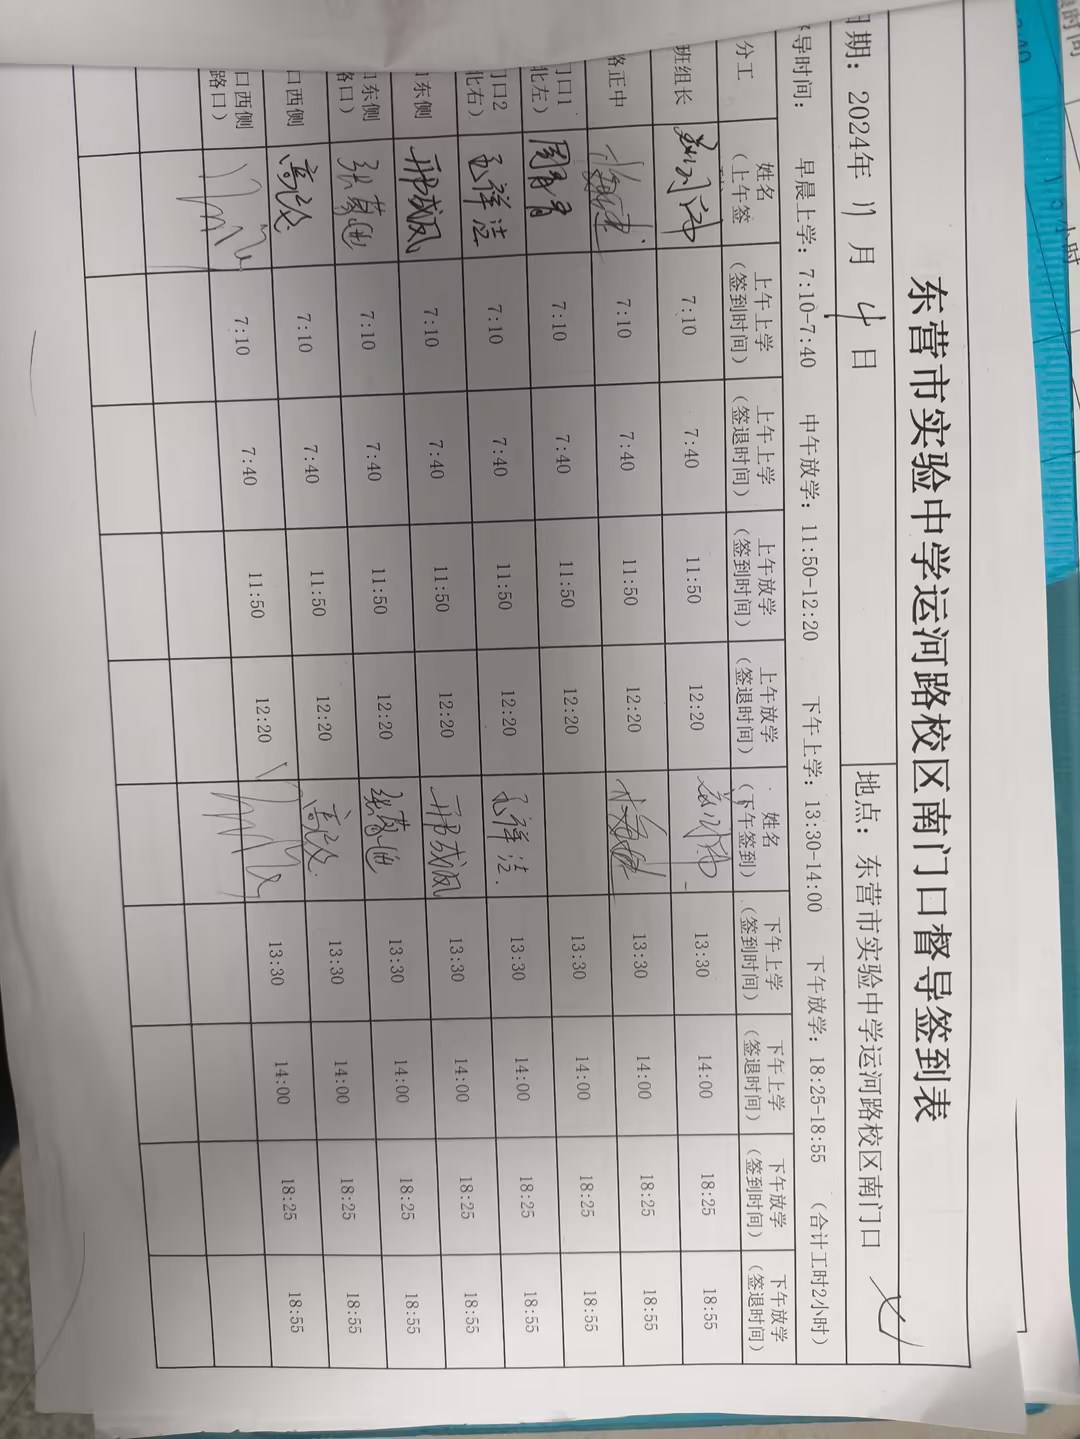 东营市实验中学运河路校区南门口督导签到表
日期：2024年 11 月 4 日 地点：东营市实验中学运河路校区南门口
导时间： 早晨上学：7:10-7:40 中午放学：11:50-12:20 下午上学：13:30-14:00 下午放学：18:25-18:55 （合计工时2小时）
分工 姓名（上午签 上午上学（签到时间） 上午上学（签退时间） 上午放学（签到时间） 上午放学（签退时间） 姓名（下午签到） 下午上学（签到时间） 下午上学（签退时间） 下午放学（签到时间） 下午放学（签退时间）
班组长 7:10 7:40 11:50 12:20 13:30 14:00 18:25 18:55
路正中 7:10 7:40 11:50 12:20 13:30 14:00 18:25 18:55
门口1 北左） 7:10 7:40 11:50 12:20 13:30 14:00 18:25 18:55
门口2 北右） 王祥法 7:10 7:40 11:50 12:20 王祥法 13:30 14:00 18:25 18:55
东侧 邢成凤 7:10 7:40 11:50 12:20 邢成凤 13:30 14:00 18:25 18:55
东侧 路口） 7:10 7:40 11:50 12:20 13:30 14:00 18:25 18:55
口西侧 7:10 7:40 11:50 12:20 13:30 14:00 18:25 18:55
口西侧 路口） 7:10 7:40 11:50 12:20 13:30 14:00 18:25 18:55
小时